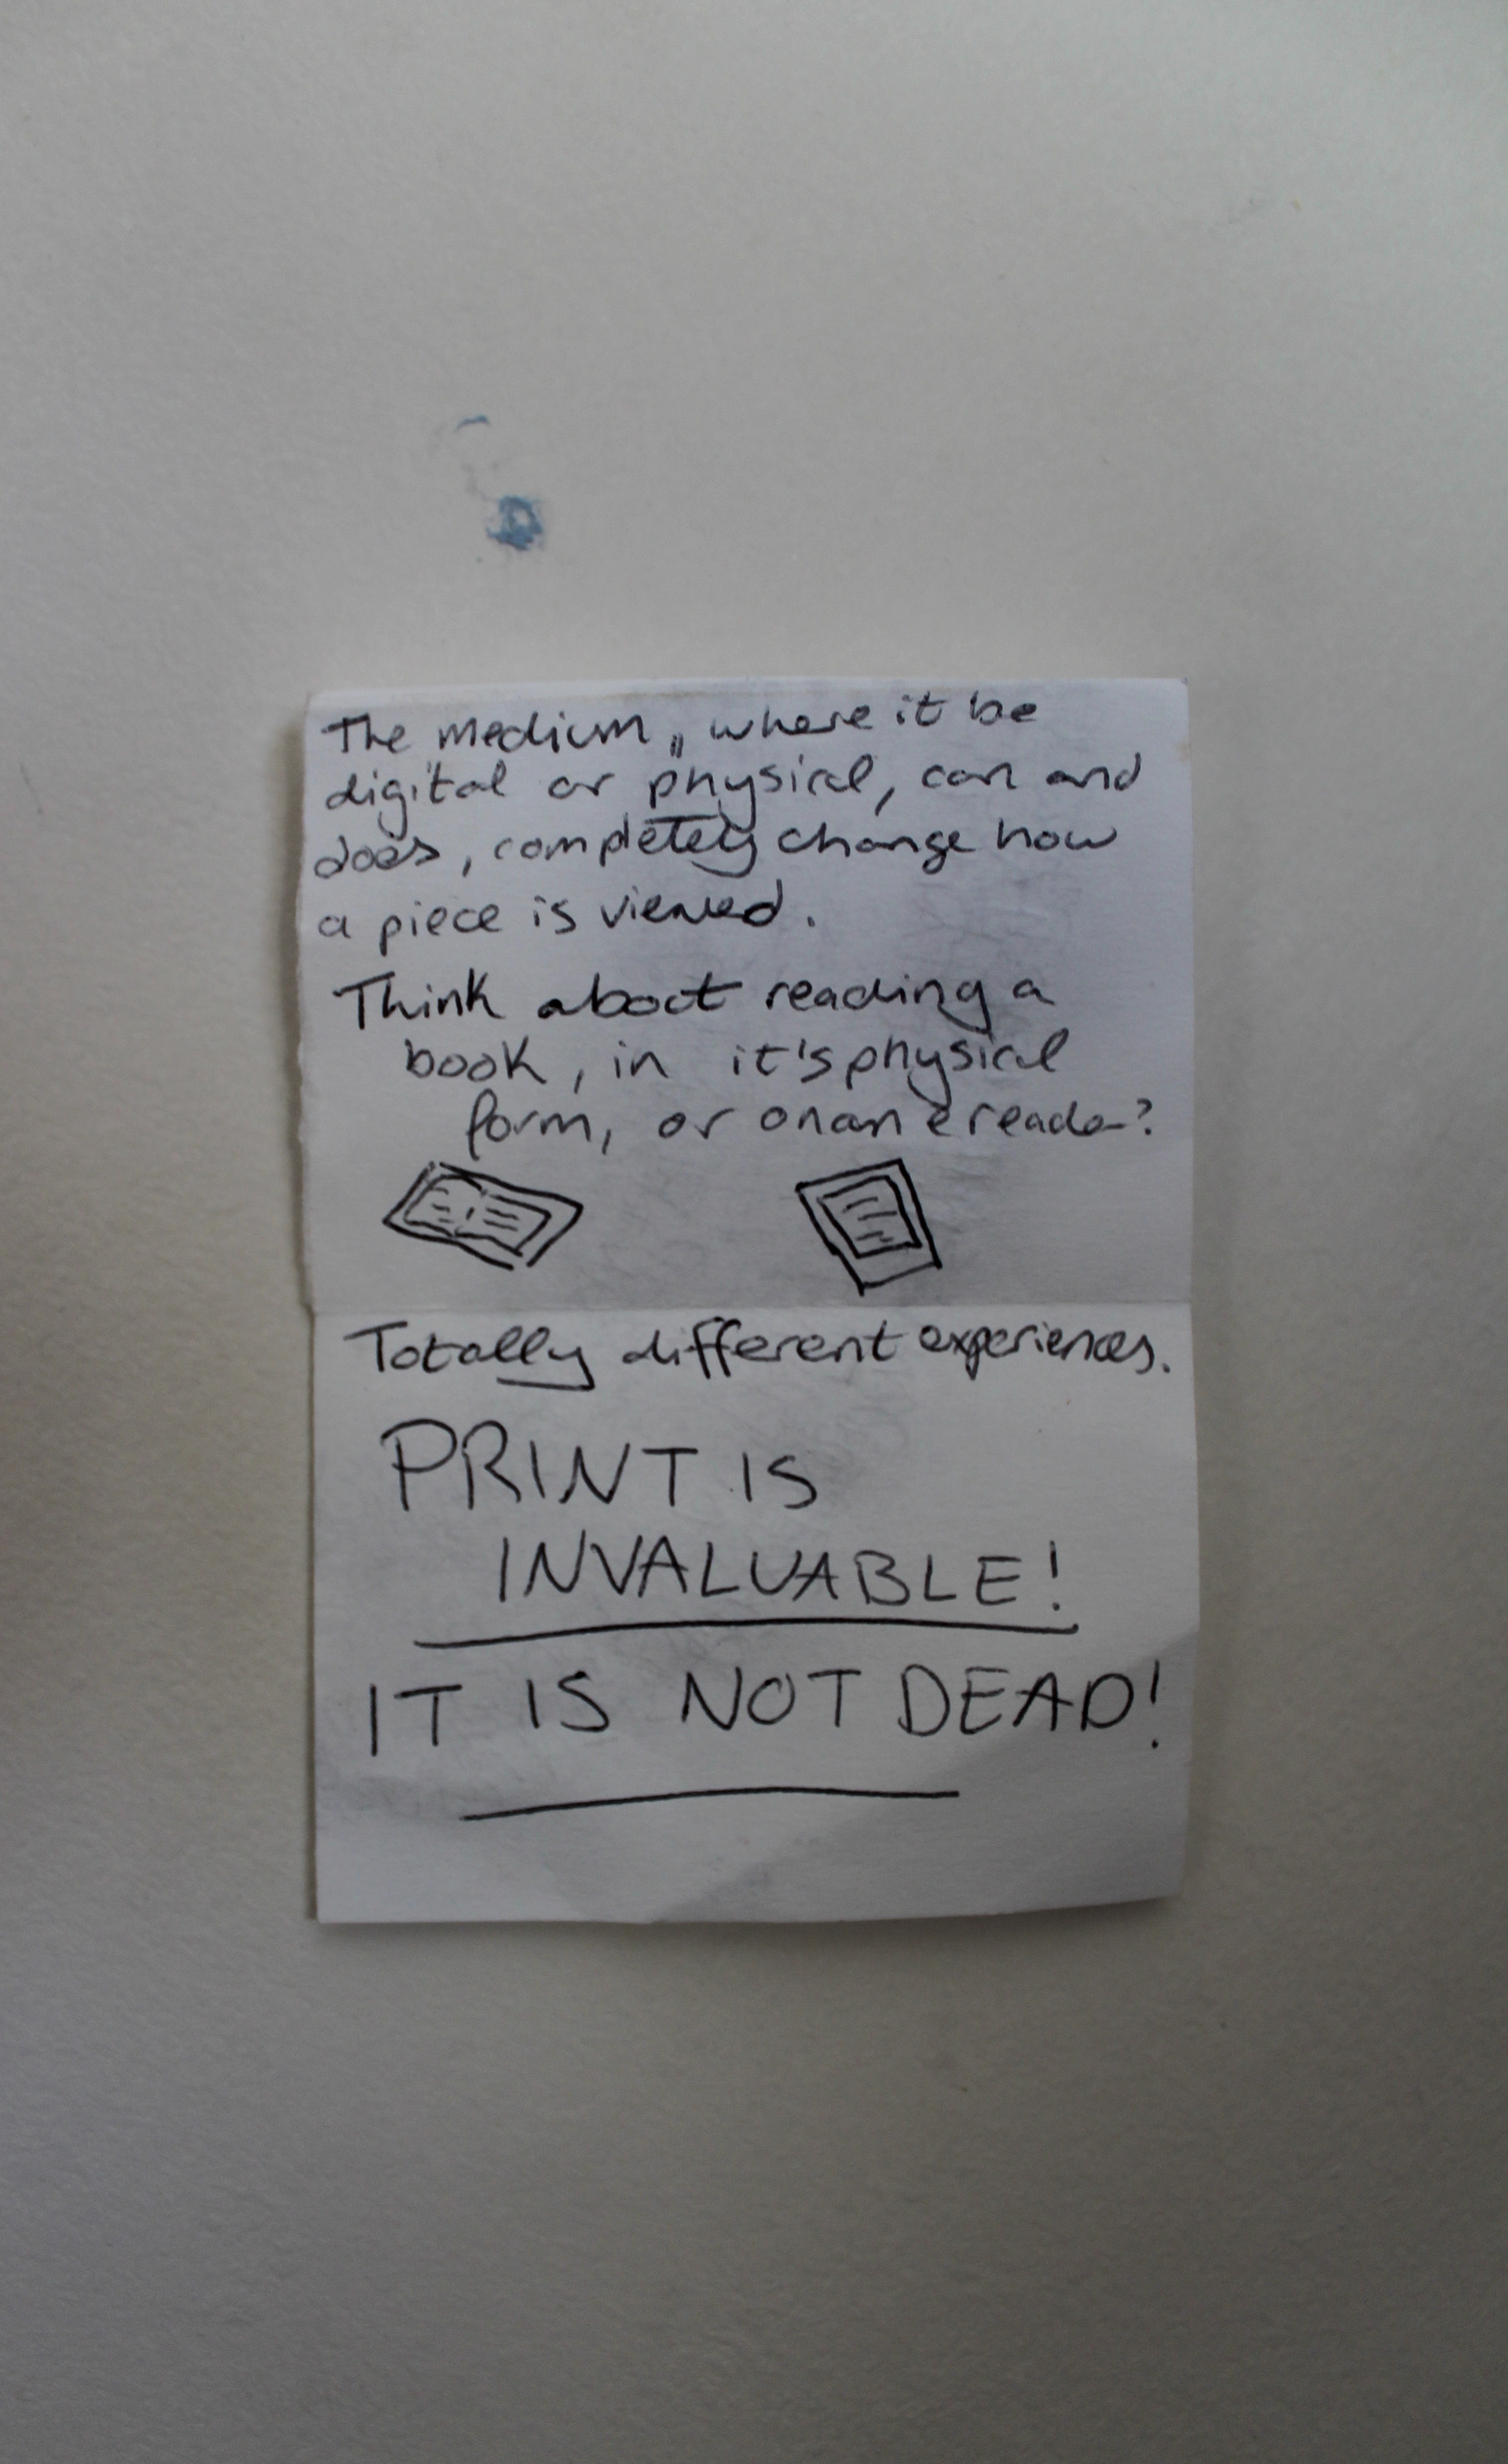 The medium, where it be
digital or physical, can and
does, completely change how
a piece is viewed.
Think about reading a
book, in it's physical
form, or on an ereader?
Totally different experiences.
PRINT IS
INVALUABLE!
IT IS NOT DEAD!